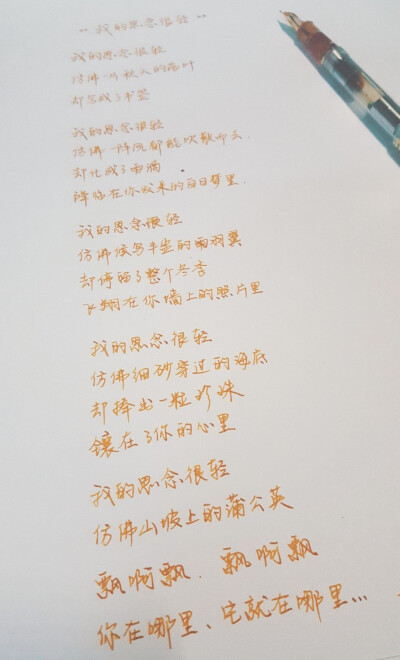 "我的思念很轻"
我的思念很轻
仿佛一片秋天的落叶
却写成了书签
我的思念很轻
仿佛一阵风都能吹散的云
却化成了雨滴
降临在你做来的白日梦里
我的思念很轻
仿佛候鸟丰盈的雨羽翼
却停留了整个冬季
飞翔在你墙上的照片里
我的思念很轻
仿佛细砂穿过的海底
却择出一粒珍珠
镶在了你的心里
我的思念很轻
仿佛山坡上的蒲公英
飘啊飘、飘啊飘
你在哪里、它就在哪里...